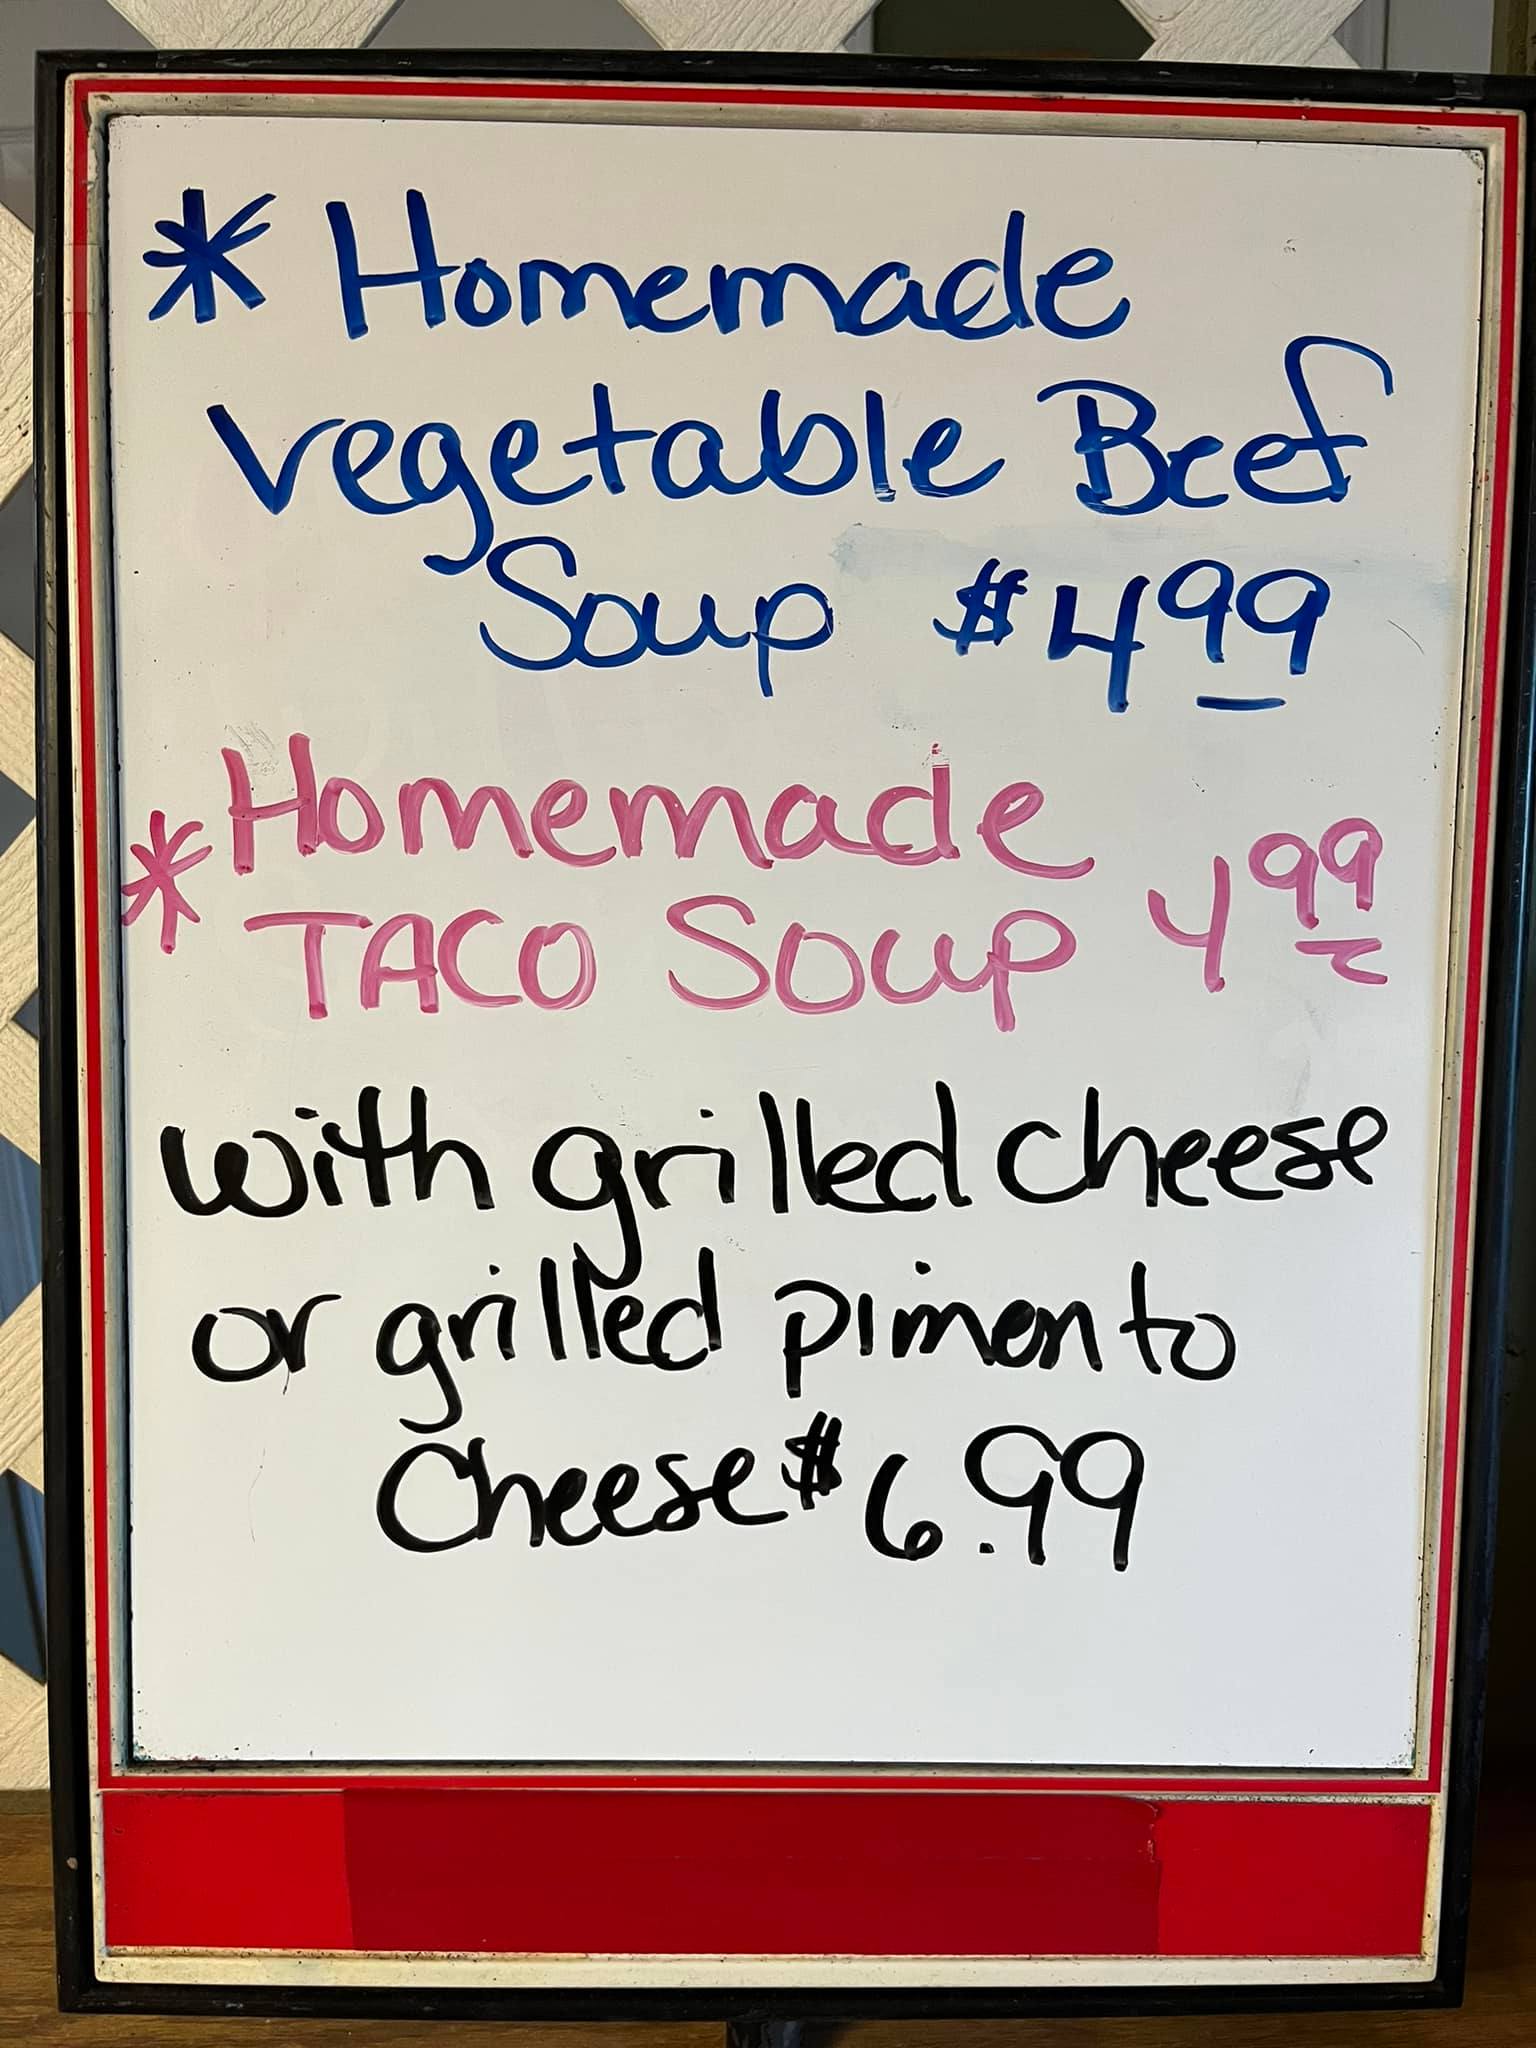 * Homemade
vegetable Beef
Soup $4.99
* Homemade
TACO SOUP 4.99
with grilled cheese
or grilled pimento
Cheese $6.99